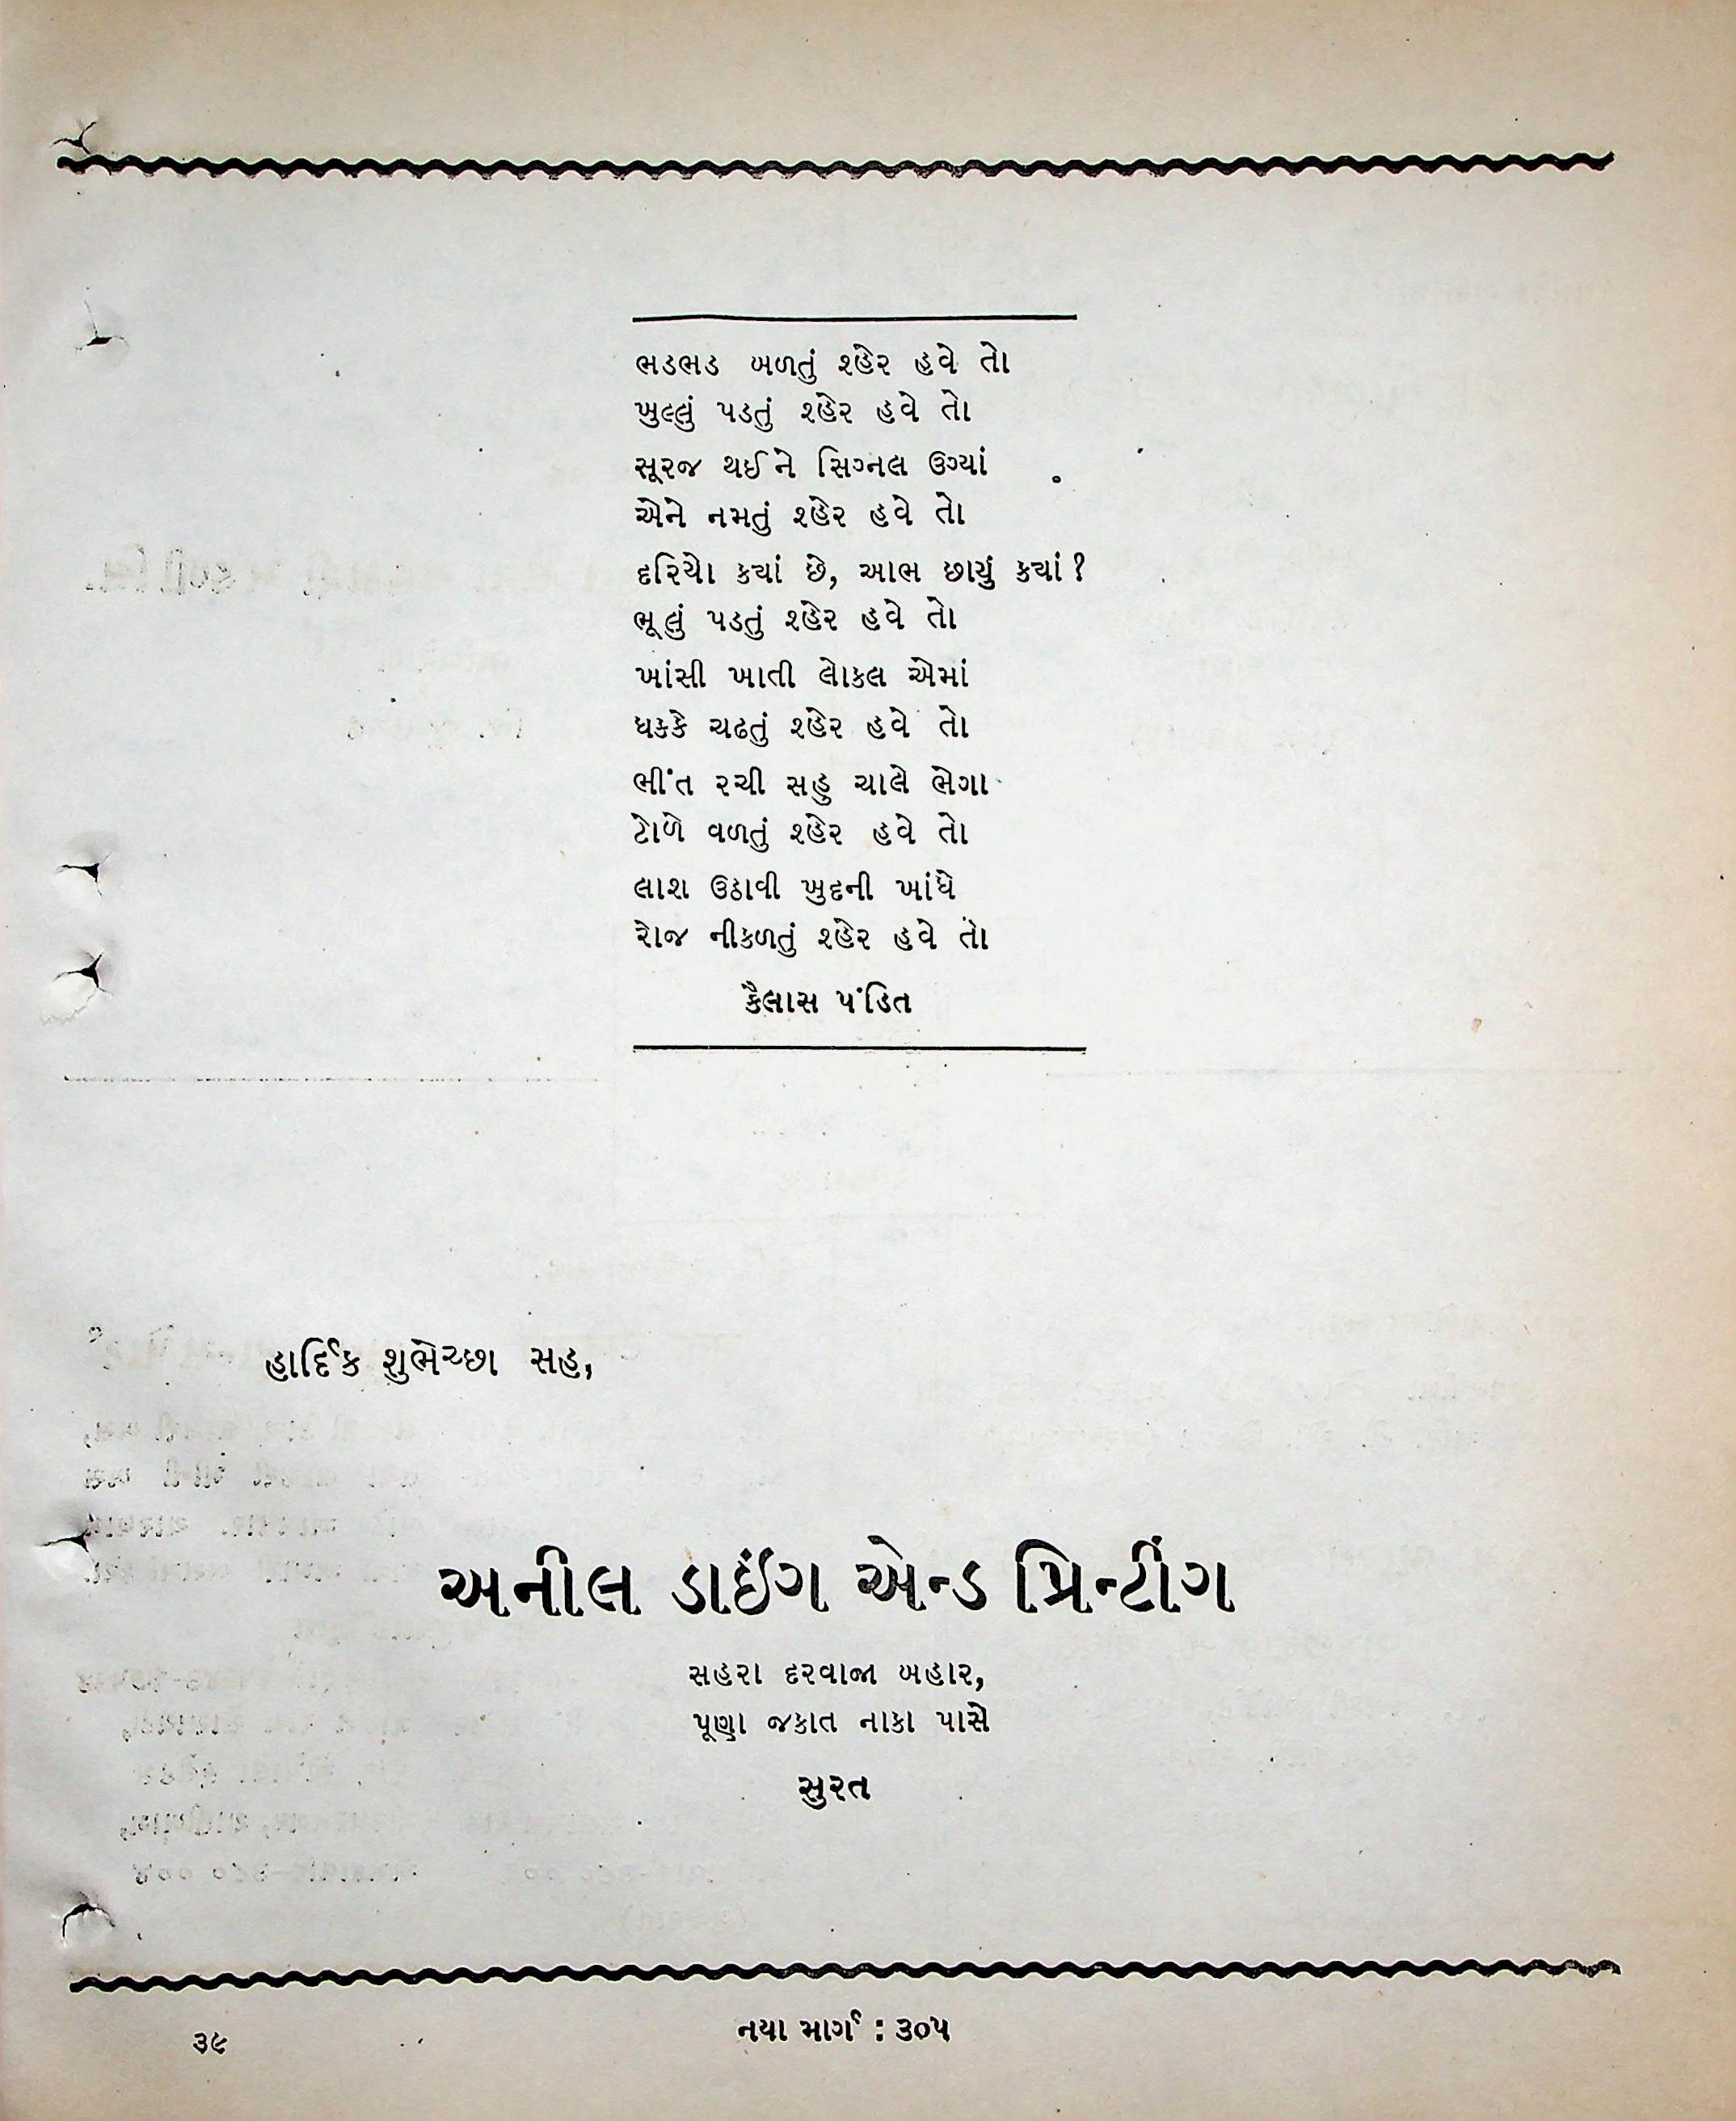 ભડભડ બળતું શ્હેર હવે તો
ખુલ્લું પડતું શ્હેર હવે તો
સૂરજ થઈને સિગ્નલ ઉગ્યાં
એને નમતું શ્હેર હવે તો
દરિયો કયાં છે, આભ છાયું કયાં?
ભૂલું પડતું શ્હેર હવે તો
ખાંસી ખાતી લોકલ એમાં
ધકકે ચઢતું શ્હેર હવે તો
ભીંત રચી સહુ ચાલે ભેગા
ટોળે વળતું શ્હેર હવે તો
લાશ ઉઠાવી ખુદની ખાંધે
રોજ નીકળતું શ્હેર હવે તો
કૈલાસ પંડિત
હાર્દિક શુભેચ્છા સહ,
અનીલ ડાઈંગ એન્ડ પ્રિન્ટીંગ
સહરા દરવાજા બહાર,
પૂણા જકાત નાકા પાસે
સુરત
૩૯ નયા માર્ગ : ૩૦૫